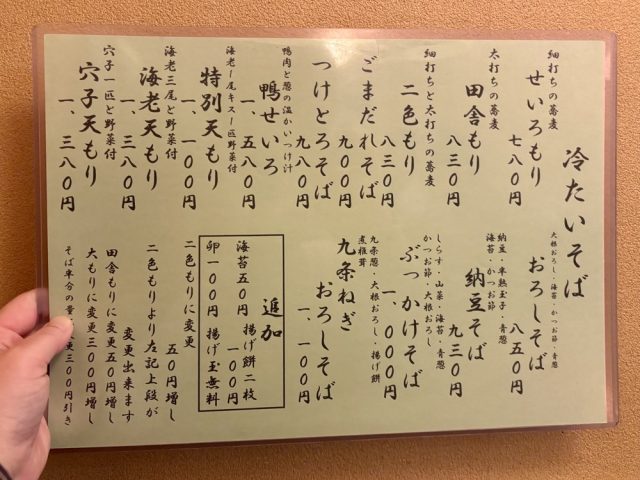 冷たいそば
細打ちの蕎麦
せいろもり
七八〇円
太打ちの蕎麦
田舎もり
八三〇円
細打ちと太打ちの蕎麦
二色もり
八三〇円
ごまだれそば
九〇〇円
つけとろそば
九八〇円
鴨肉と葱の温かいつけ汁
鴨せいろ
一、五八〇円
海老一尾キス一匹野菜付
特別天もり
一、一〇〇円
海老三尾と野菜付
海老天もり
一、三八〇円
穴子一匹と野菜付
穴子天もり
一、三八〇円
大根おろし・海苔・かつお節・青葱
おろしそば
八五〇円
納豆・半熟玉子・青葱
海苔・かつお節
納豆そば
九三〇円
しらす・山菜・海苔・青葱
かつお節・大根おろし
ぶっかけそば
一、〇〇〇円
九条葱・大根おろし・揚げ餅
煮椎茸
九条ねぎ
おろしそば
一、一〇〇円
追加
揚げ餅二枚
一〇〇円
海苔五〇円
卵一〇〇円 揚げ玉無料
二色もりに変更
五〇円増し
二色もりより左記上段が
変更出来ます
田舎もりに変更五〇円増し
大もりに変更三〇〇円増し
そば半分の量
変更三〇〇円引き